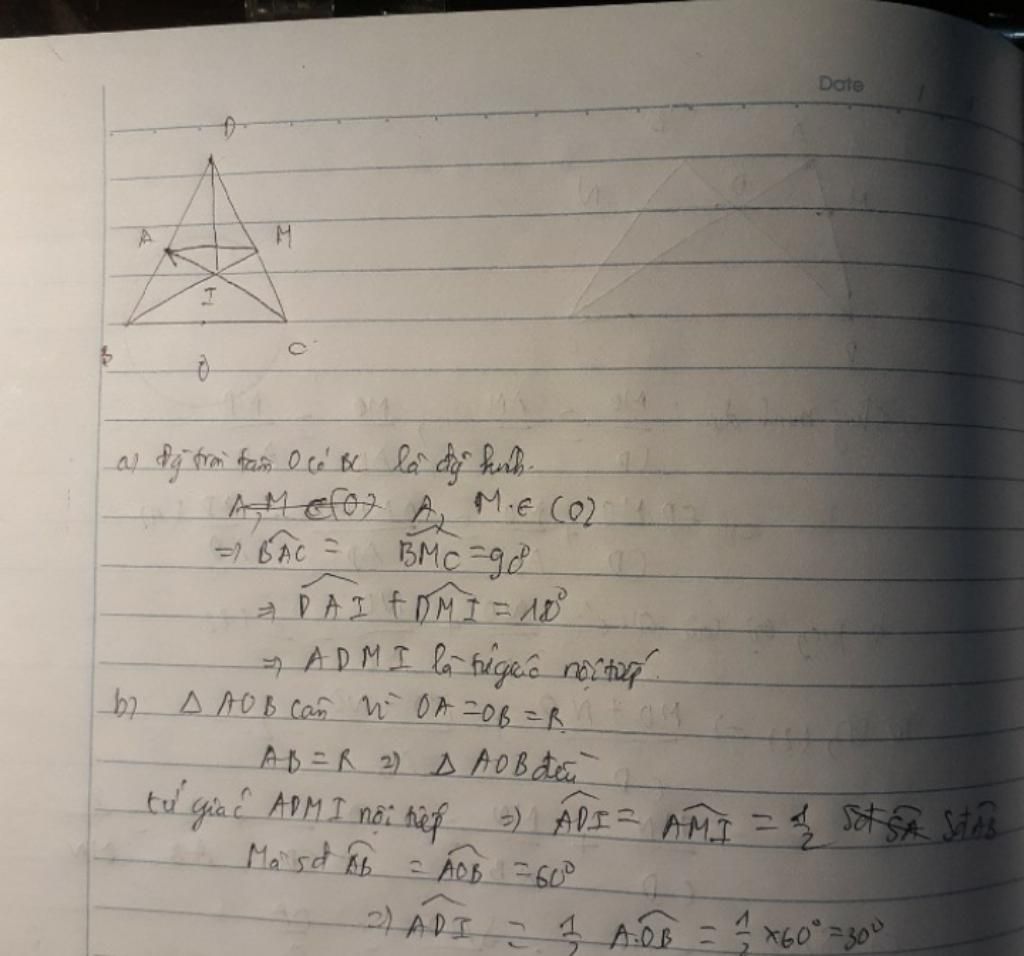 Date
D
A M
I
B O C
a) Đg tròn tâm O có BC là đg kính.
A, M ∈ (O) A, M ∈ (O)
=> BAC = BMC = 90°
=> DAI + DMI = 180°
=> ADMI là tứ giác nội tiếp.
b) Δ AOB cân vì OA = OB = R
AB = R => Δ AOB đều
tứ giác ADMI nội tiếp => ADI = AMI = 1/2 Sđ SA Sđ AB
Mà sđ AB = AOB = 60°
=> ADI = 1/2 AOB = 1/2 × 60° = 30°